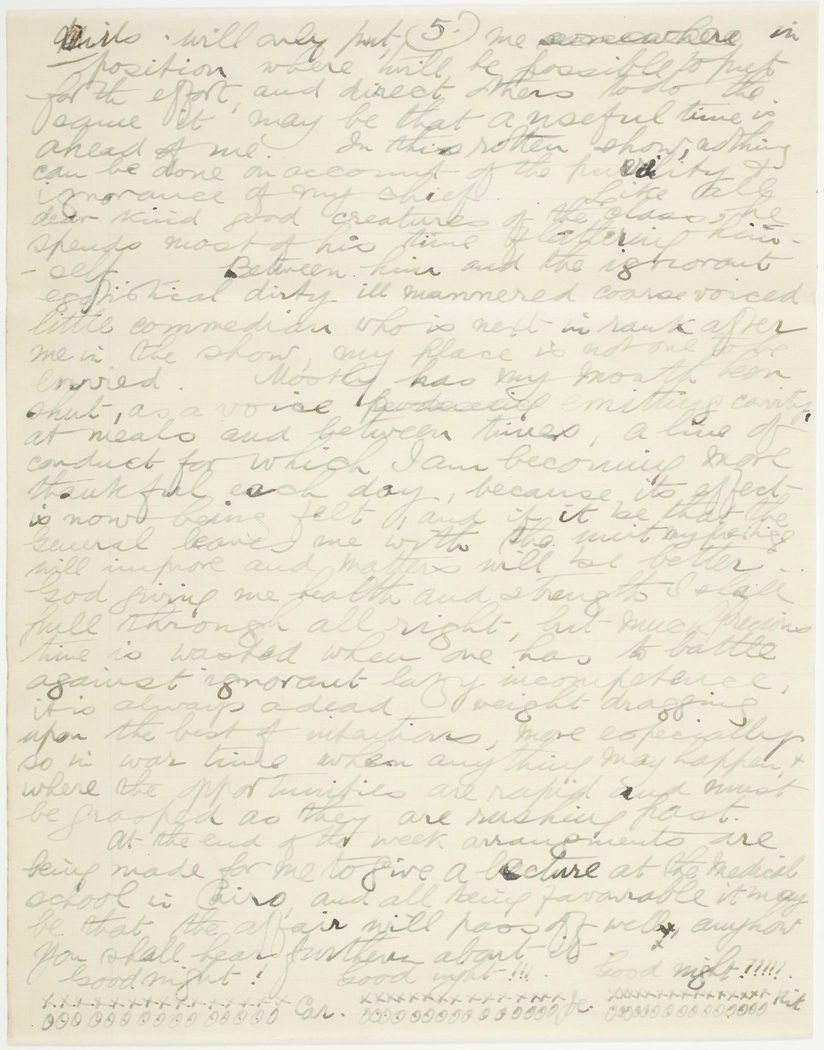 5.
will only put me somewhere in
position where will be possible to put
forth effort, and direct others to do the
same it may be that a useful time is
ahead of me. In this rotten show, nothing
can be done on account of the &
ignorance of my chief. Like all
dear kind good creatures of the class, he
spends most of his time flattering him-
-self. Between him and the ignorant
egotistical dirty ill mannered coarse voiced
little commedian who is next in rank after
me in the show, my place is not one to be
envied. Mostly has my mouth been
shut, as a voice emitting cavity,
at meals and between times, a line of
conduct for which I am becoming more
thankful each day, because its effect
is now being felt, and if it be that the
General leaves me with the unit my prestige
will improve and matters will be better.
God giving me health and strength I shall
pull through all right, but much precious
time is wasted when one has to battle
against ignorant lazy incompetence,
it is always a dead weight dragging
upon the best of intentions, more especially
so in war time when anything may happen, &
where the opportunities are rapid and must
be grasped as they are rushing past.
At the end of the week arrangments are
being made for me to give a lecture at the Medical
school in Cairo, and all being favourable it may
be that the affair will pass off well, anyhow
you shall hear further about it
Good night! Good night!!! Good night!!!!!
Car. Je. Kit